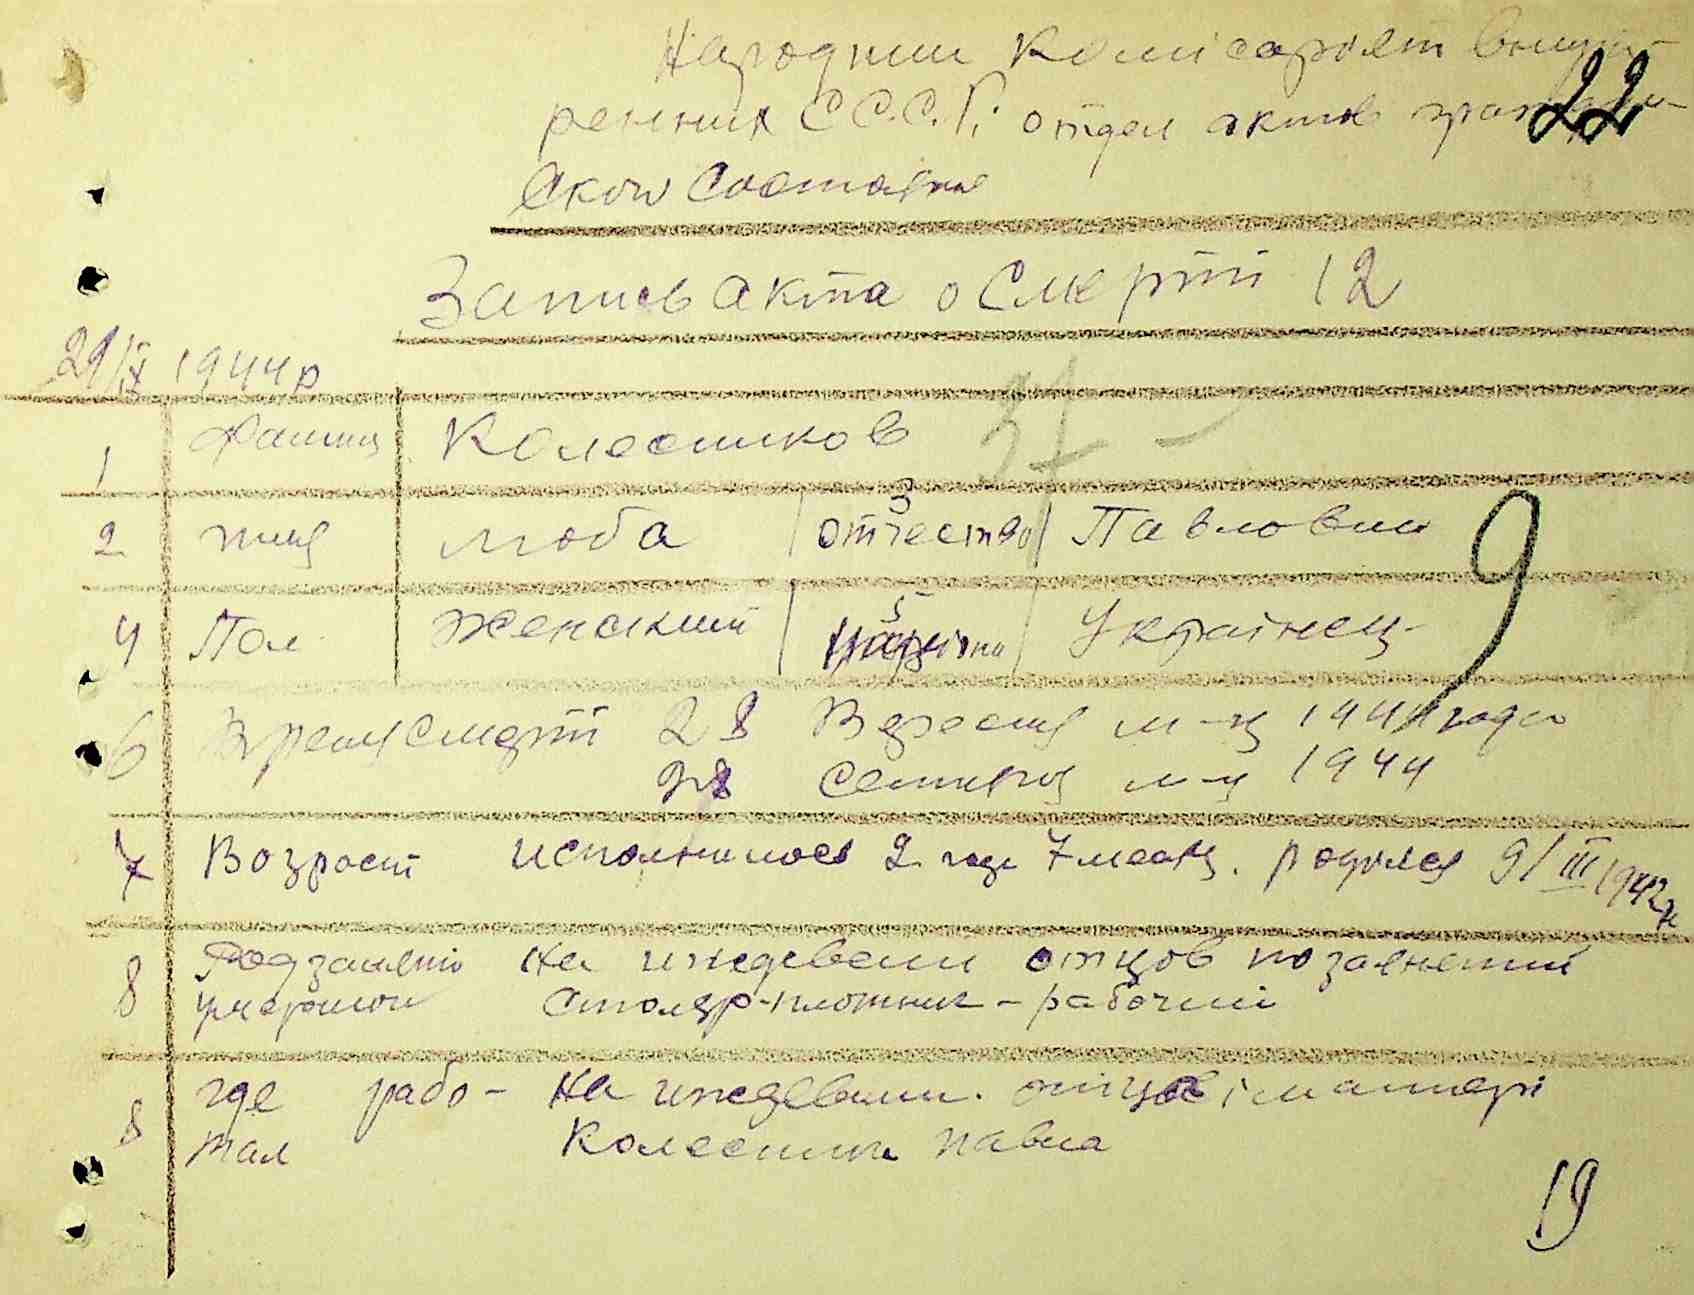 Народнии Комісаріят внут-
22
ренних С.С.С.Р; отдел актов граждан-
ской состаяния
Запись акта о Смерти 12
29/IX 1944 р
1 Фамил Колесников
2 имя Люба 3 отчество Павловни
9
4 Пол Женский 5 Українец
6 Время смерти 28 Вересня м-ц 1944 года
28 Сентяря м-ц 1944
7 Возраст исполнилося 2 года 7 месяц. родился 9/III 1942
8 Род занятій На иждевени отцов по заянетии
умершои столяр-плотник - рабочии
8 где рабо- На иждевени. отцов і матери
тал Колесник павла
19